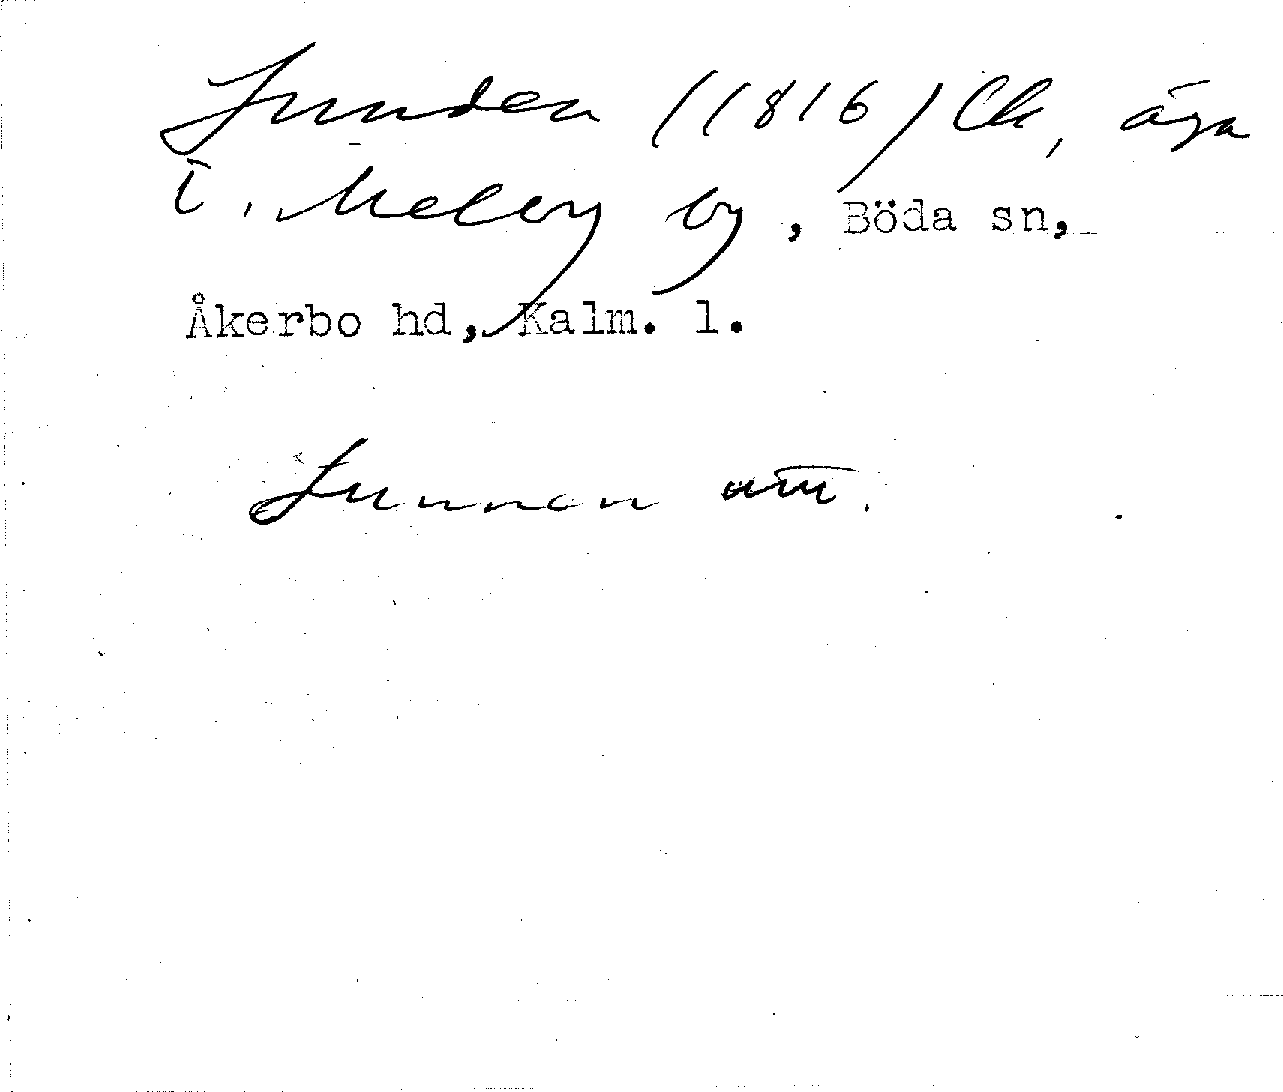 Lunden (1816) Ch, äga
i. Melby by, Böda sn,
Åkerbo hd, Kalm. l.
Lunnen